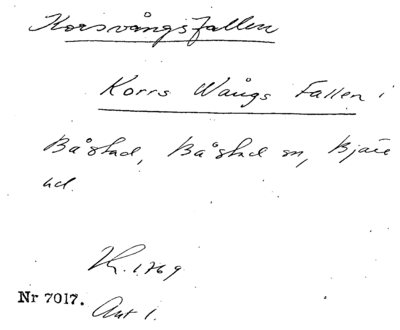 Korsvångsfallen
Korrs Wångs Fallen i
Båstad, Båstad sn, Bjäre
hd.
Kr. 1769
Nr 7017.
Akt 1.